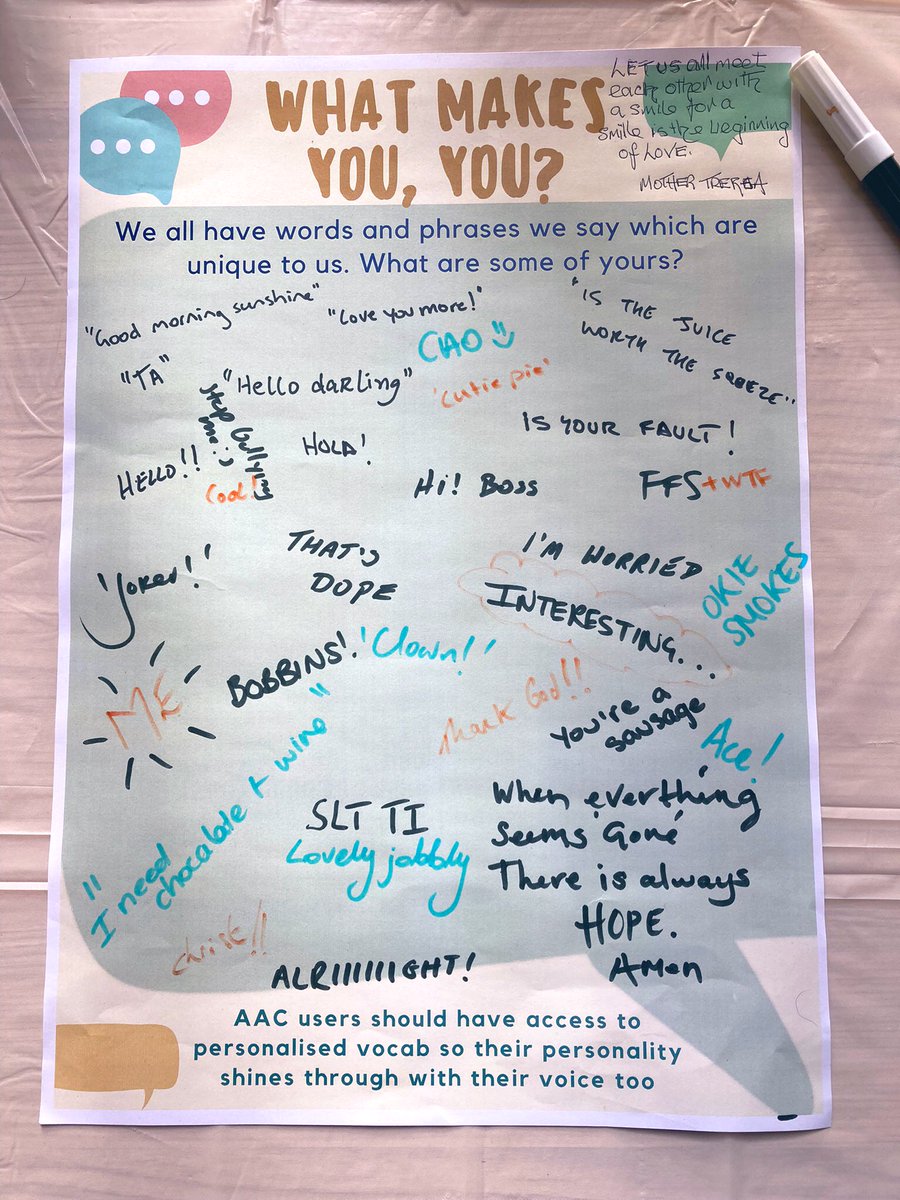 WHAT MAKES
YOU, YOU?
LET US all meet
each other with
a smile for a
smile is the beginning
of LOVE.
MOTHER TRERESA
We all have words and phrases we say which are
unique to us. What are some of yours?
"Good morning sunshine"
"Love you more!"
"IS THE JUICE
WORTH THE SQEEZE"
"TA"
CIAO
"Hello darling"
'Cutie pie'
Stop bullying
me :)
HOLA!
IS YOUR FAULT!
HELLO!!
Cool!
Hi! BOSS
FFS + WTF
'Joker!'
THAT'S
DOPE
I'M WORRIED
INTERESTING...
OKIE
SMOKES
ME
BOBBINS!
'Clown!'
Thank God!!
You're a
sausage
Ace!
"I need
chocalate + wine"
SLT TI
Lovely jobbly
When everthing
Seems Gone
There is always
HOPE.
Amen
Christ!!
ALRIIIIIIGHT!
AAC users should have access to
personalised vocab so their personality
shines through with their voice too